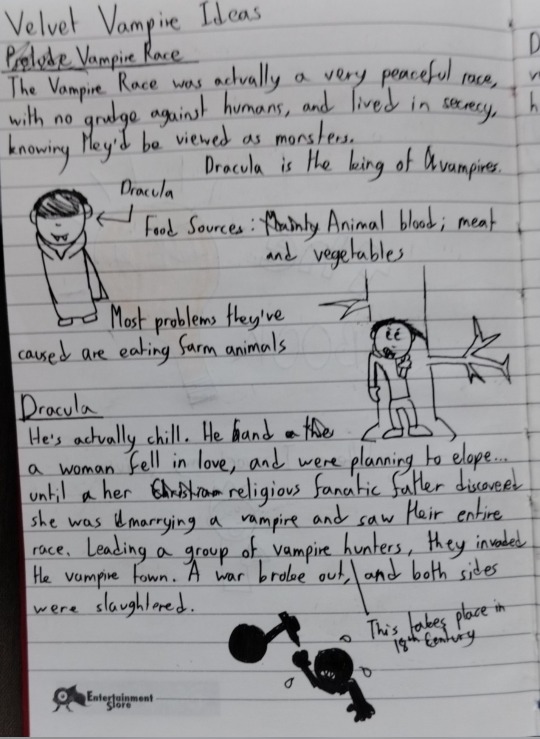 Velvet Vampire Ideas
Prelude Vampire Race
The Vampire Race was actually a very peaceful race,
with no grudge against humans, and lived in secrecy,
knowing they'd be viewed as monsters.
Dracula is the king of vampires.
Dracula
Food Sources: Mainly Animal blood; meat
and vegetables
Most problems they've
caused are eating farm animals
Dracula
He's actually chill. He and
a woman fell in love, and were planning to elope...
until her Christian religious fanatic father discovered
she was marrying a vampire and saw their entire
race. Leading a group of vampire hunters, they invaded
the vampire town. A war broke out, and both sides
were slaughtered.
This takes place in
18th Century
Entertainment
Store
D
h